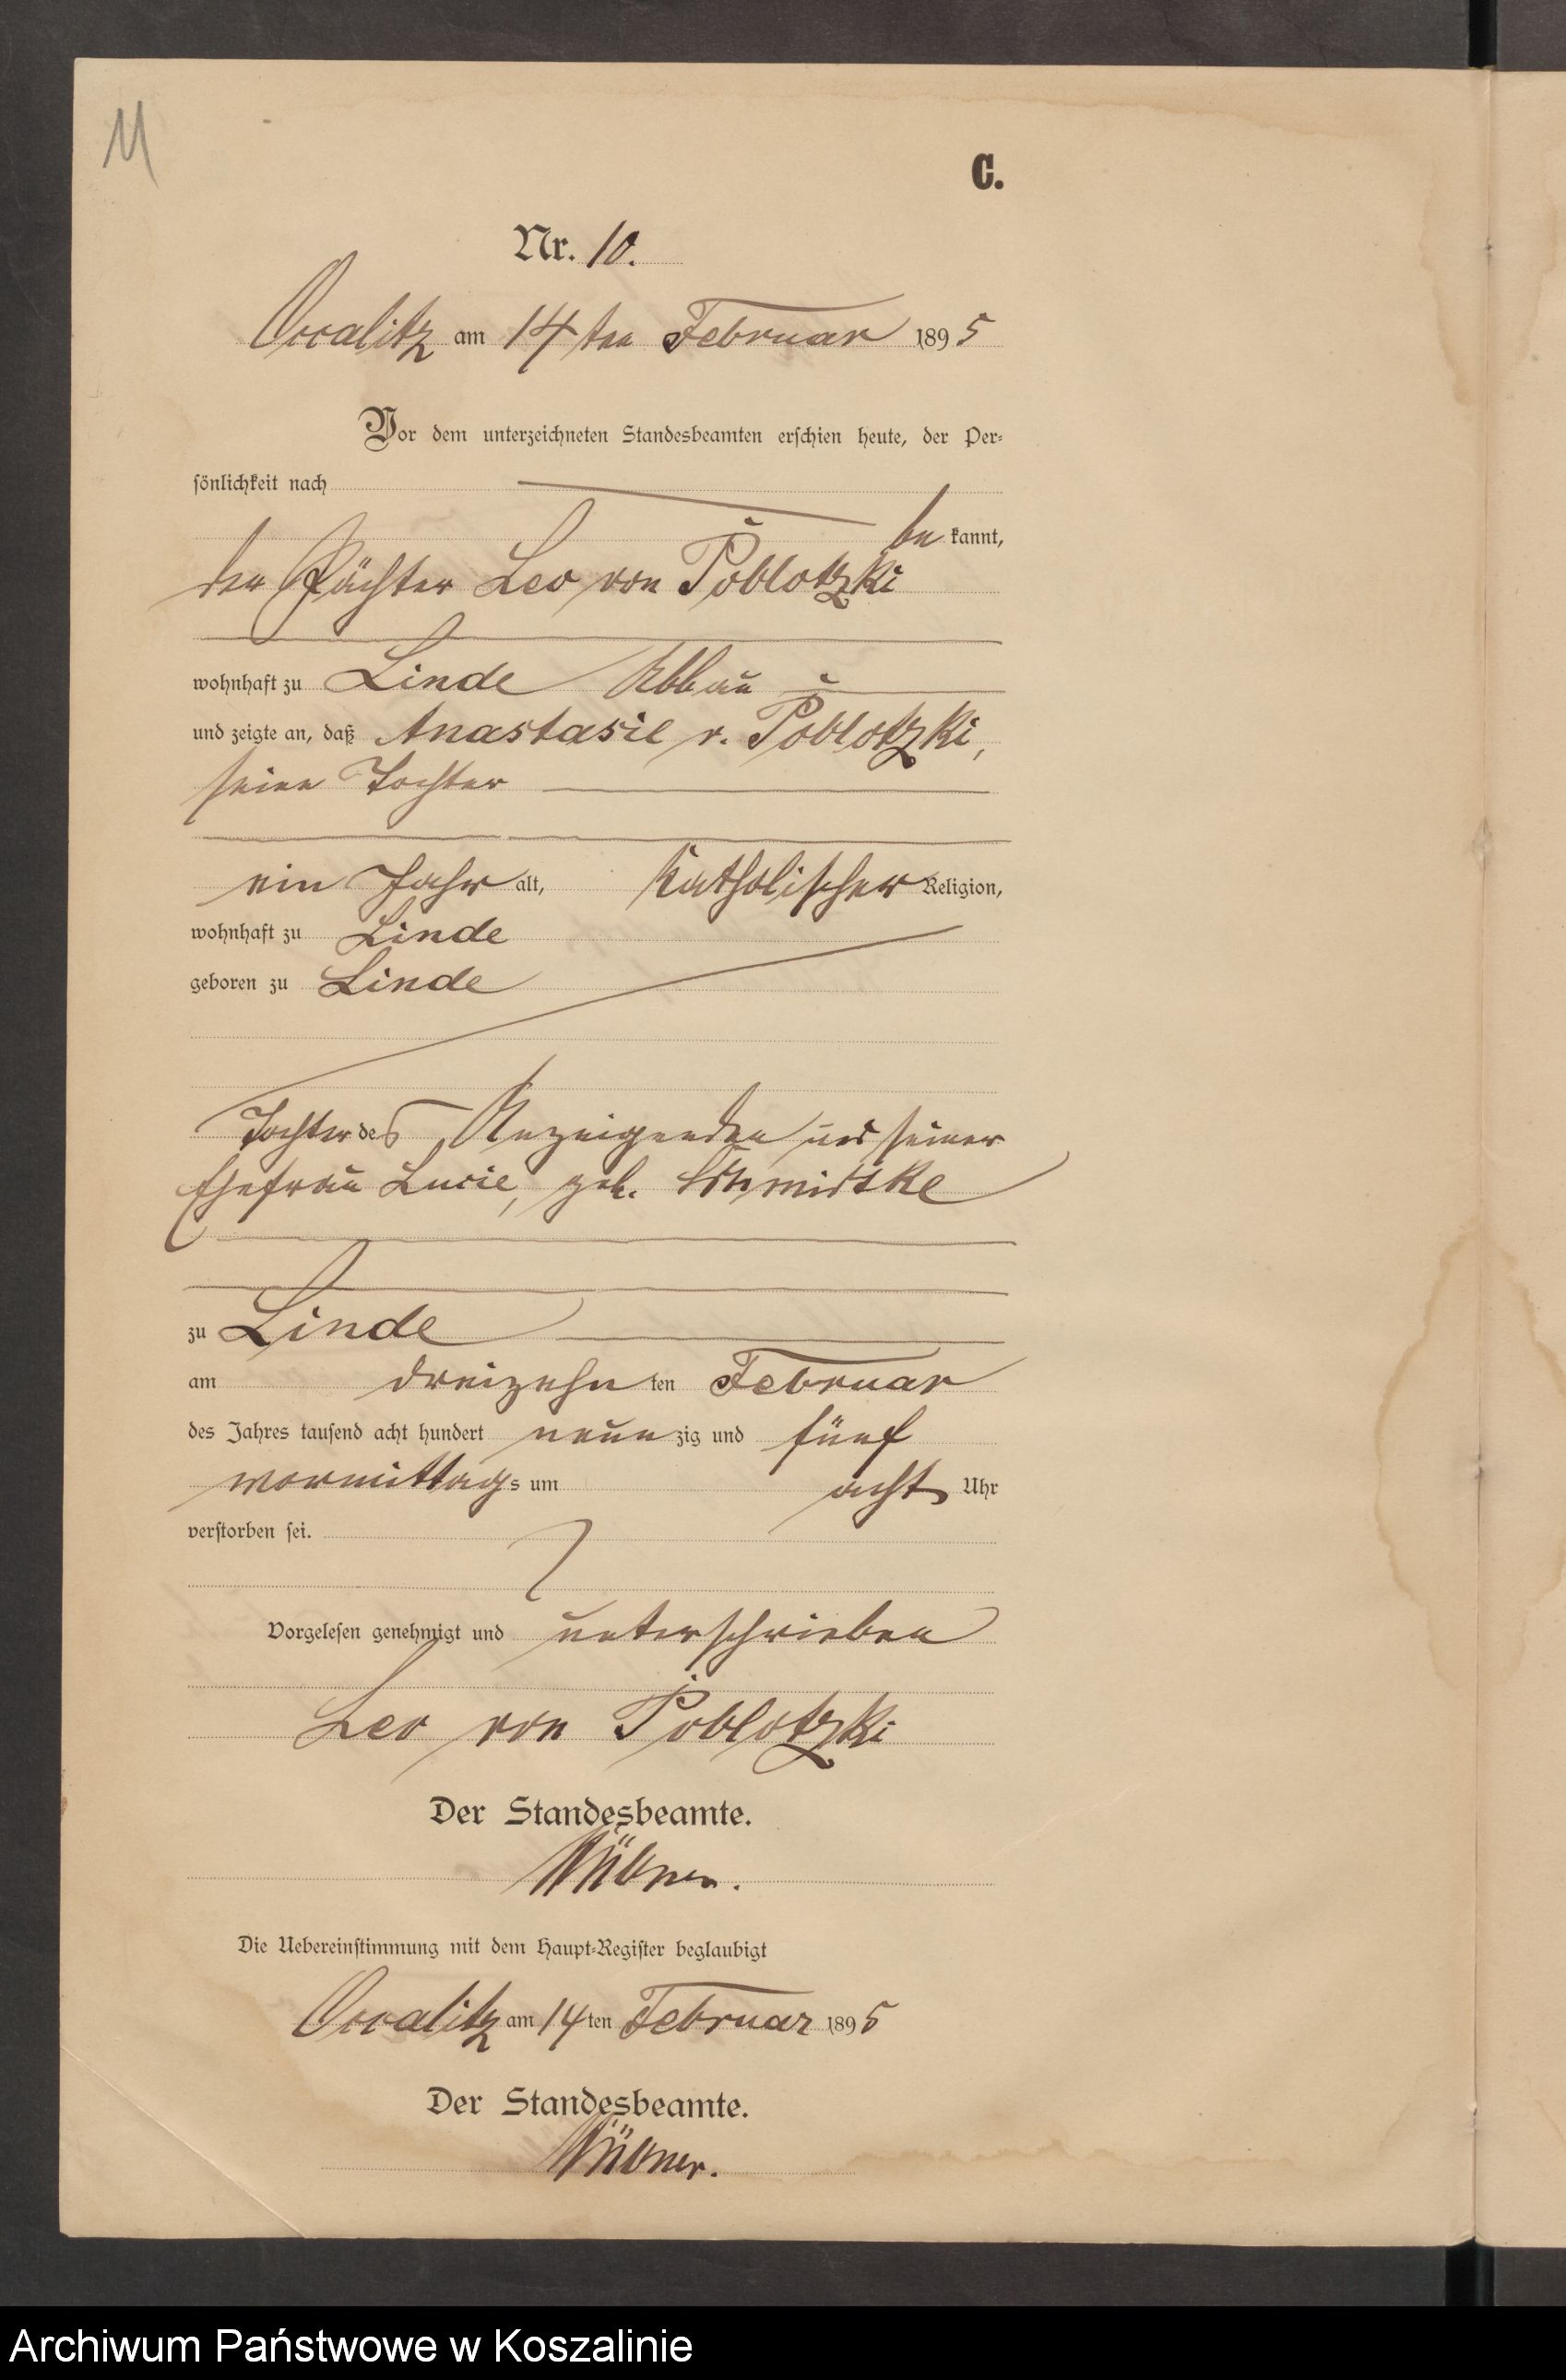 11
C.
Nr. 10.
Occalitz am 14 ten Februar 1895
Vor dem unterzeichneten Standesbeamten erschien heute, der Per-
sönlichkeit nach
be kannt,
der Pächter Leo von Poblotzki
wohnhaft zu Linde Abbau
und zeigte an, daß Anastasie v. Poblotzki,
seine Tochter
ein Jahr alt, katholischer Religion,
wohnhaft zu Linde
geboren zu Linde
Tochter des Anzeigenden und seiner
Ehefrau Lucie, geb. Schmidtke
zu Linde
am dreizehn ten Februar
des Jahres tausend acht hundert neun zig und fünf
vormittags um acht Uhr
verstorben sei.
Vorgelesen genehmigt und unterschrieben
Leo von Poblotzki
Der Standesbeamte.
Die Uebereinstimmung mit dem Haupt-Register beglaubigt
Occalitz am 14 ten Februar 1895
Der Standesbeamte.
Archiwum Państwowe w Koszalinie